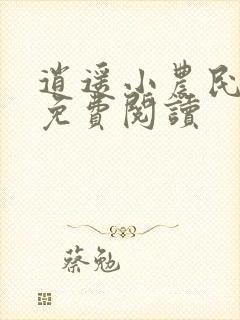 逍遥小農民
免費閱讀
蔡勉